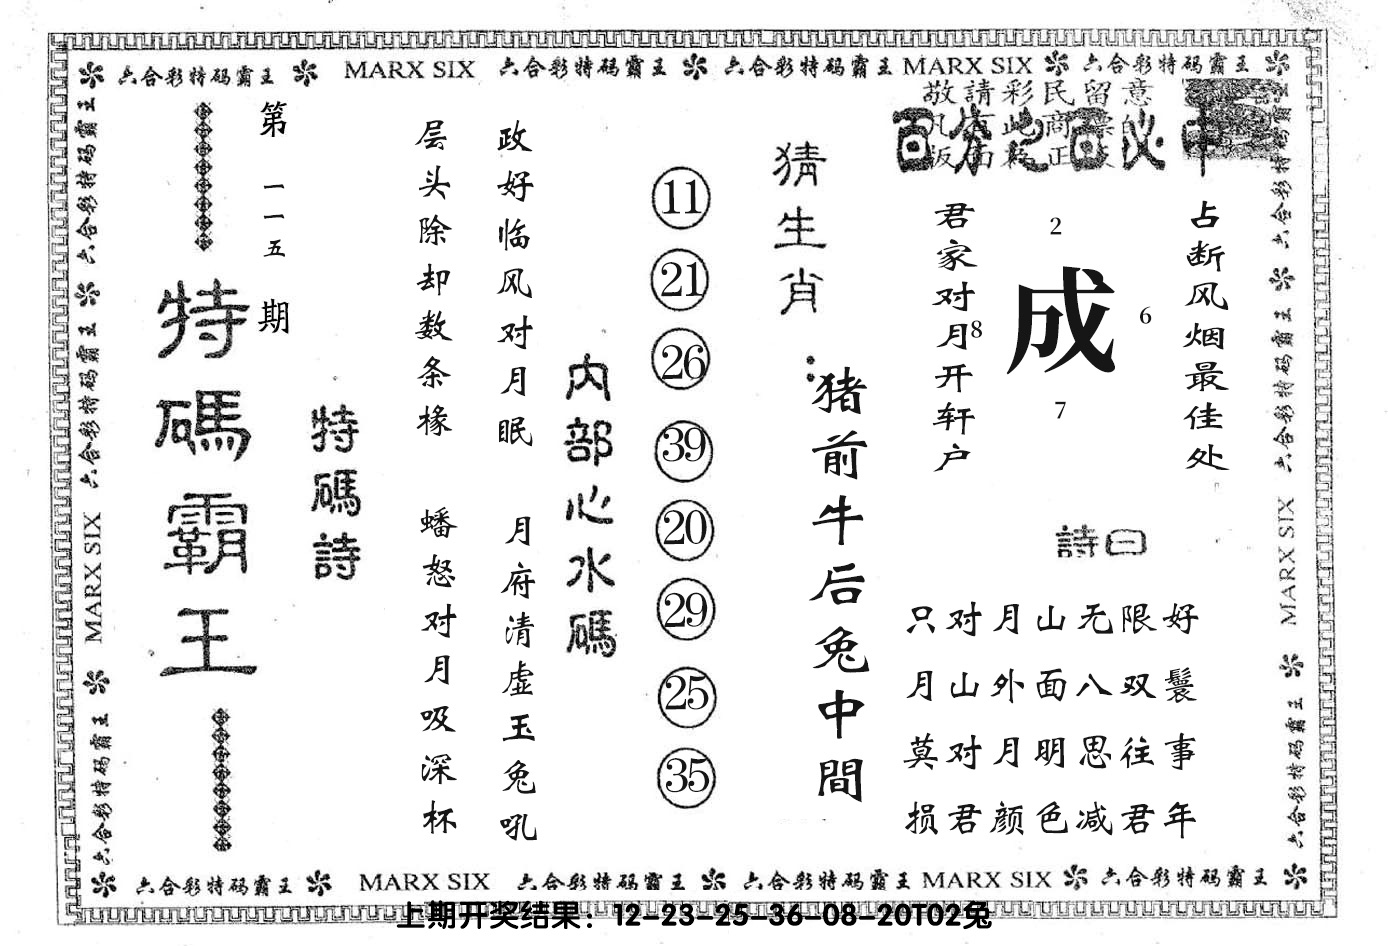 六合彩特码霸王 MARX SIX 六合彩特码霸王 六合彩特码霸王 MARX SIX 六合彩特码霸王
敬請彩民留意
百分之百必中
占断风烟最佳处
君家对月开轩户
成
2
6
8
7
詩曰
只对月山无限好
月山外面八双鬟
莫对月明思往事
损君颜色减君年
猜生肖:
猪前牛后兔中間
11
21
26
39
20
29
25
35
内部心水碼
政好临风对月眠
月府清虚玉兔吼
层头除却数条椽
蟠怒对月吸深杯
特碼詩
第一一五期
特碼霸王
六合彩特码霸王
六合彩特码霸王
MARX SIX
六合彩特码霸王
六合彩特码霸王
六合彩特码霸王
MARX SIX
六合彩特码霸王
六合彩特码霸王 MARX SIX 六合彩特码霸王 六合彩特码霸王 MARX SIX 六合彩特码霸王
上期开奖结果：12-23-25-36-08-20T02兔